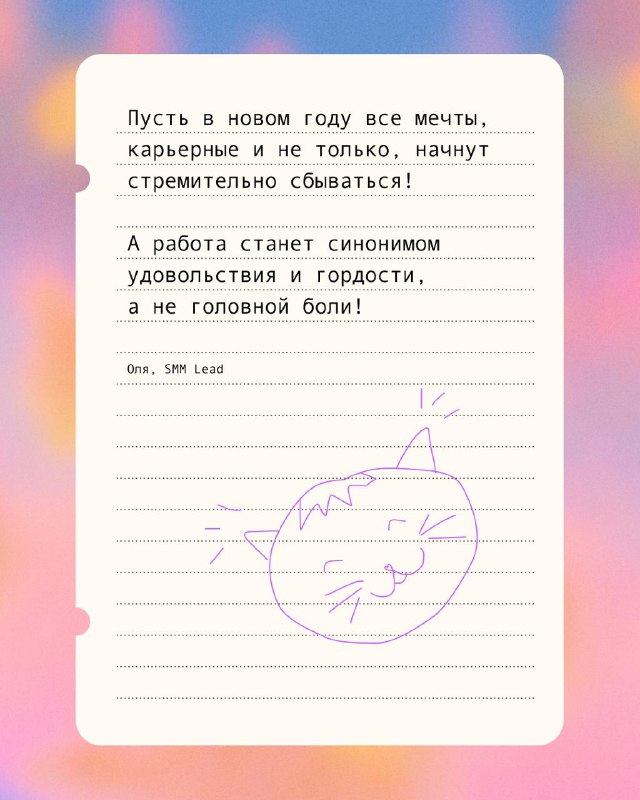 Пусть в новом году все мечты,
карьерные и не только, начнут
стремительно сбываться!
А работа станет синонимом
удовольствия и гордости,
а не головной боли!
Оля, SMM Lead